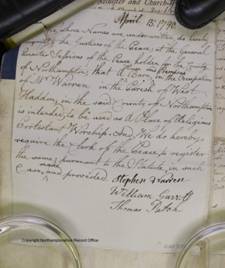 April 13. 1790
We whose Names are underwritten do hereby
certify the Justices of the Peace, at the General
Quarter Sessions of the Peace holden for the County
of Northampton, that A Barn, in the Occupation
of Mr Warren in the Parish of West
Haddon, in the said County of Northampton
is intended to be used as A Place of Religious
Protestant Worship. And We do hereby
require the Clerk of the Peace to register
the same, pursuant to the Statute, in such
Case, made and provided.
Stephen Warren
William Garrett
Thomas
Copyright Northamptonshire Record Office